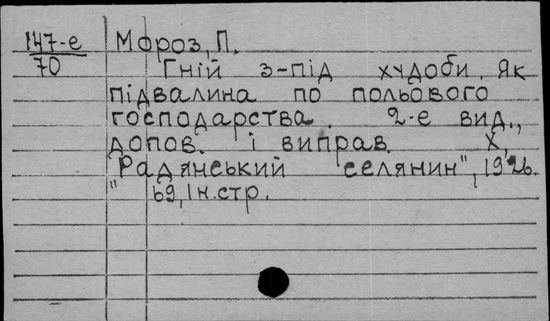 147-е Мороз, П.
70 Гній з-під худоби, як
підвалина по польового
господарства. 2-е вид.,
допов. і виправ. Х,
"Радянський селянин", 1926.
" 69, 1 н.стр.